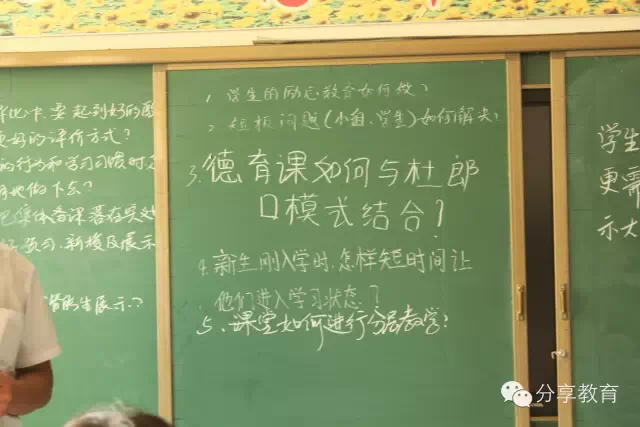 要起到好的
更好的评价方式?
的行为和学习习惯时
做下去?
集体备课落在实处
预习、新授及展示
展示?
1. 学生的励志教育如何做?
2. 短板问题(小组、学生)如何解决?
3. 德育课如何与杜郎
口模式结合?
4. 新生刚入学时,怎样短时间让
他们进入学习状态?
5、课堂如何进行分层教学?
学生
更需
示大
分享教育